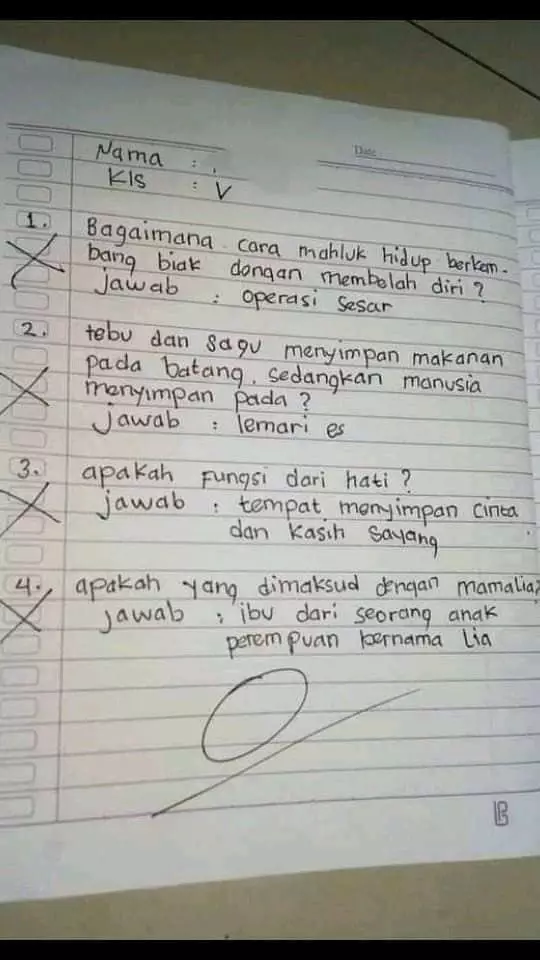 Date
Nama : .
Kls : V
1. Bagaimana cara mahluk hidup berkem-
bang biak dengan membelah diri ?
jawab : operasi sesar
2. tebu dan sagu menyimpan makanan
pada batang, sedangkan manusia
menyimpan pada ?
jawab : lemari es
3. apakah fungsi dari hati ?
jawab : tempat menyimpan cinta
dan kasih sayang
4. apakah yang dimaksud dengan mamalia?
jawab : ibu dari seorang anak
perempuan bernama Lia
0